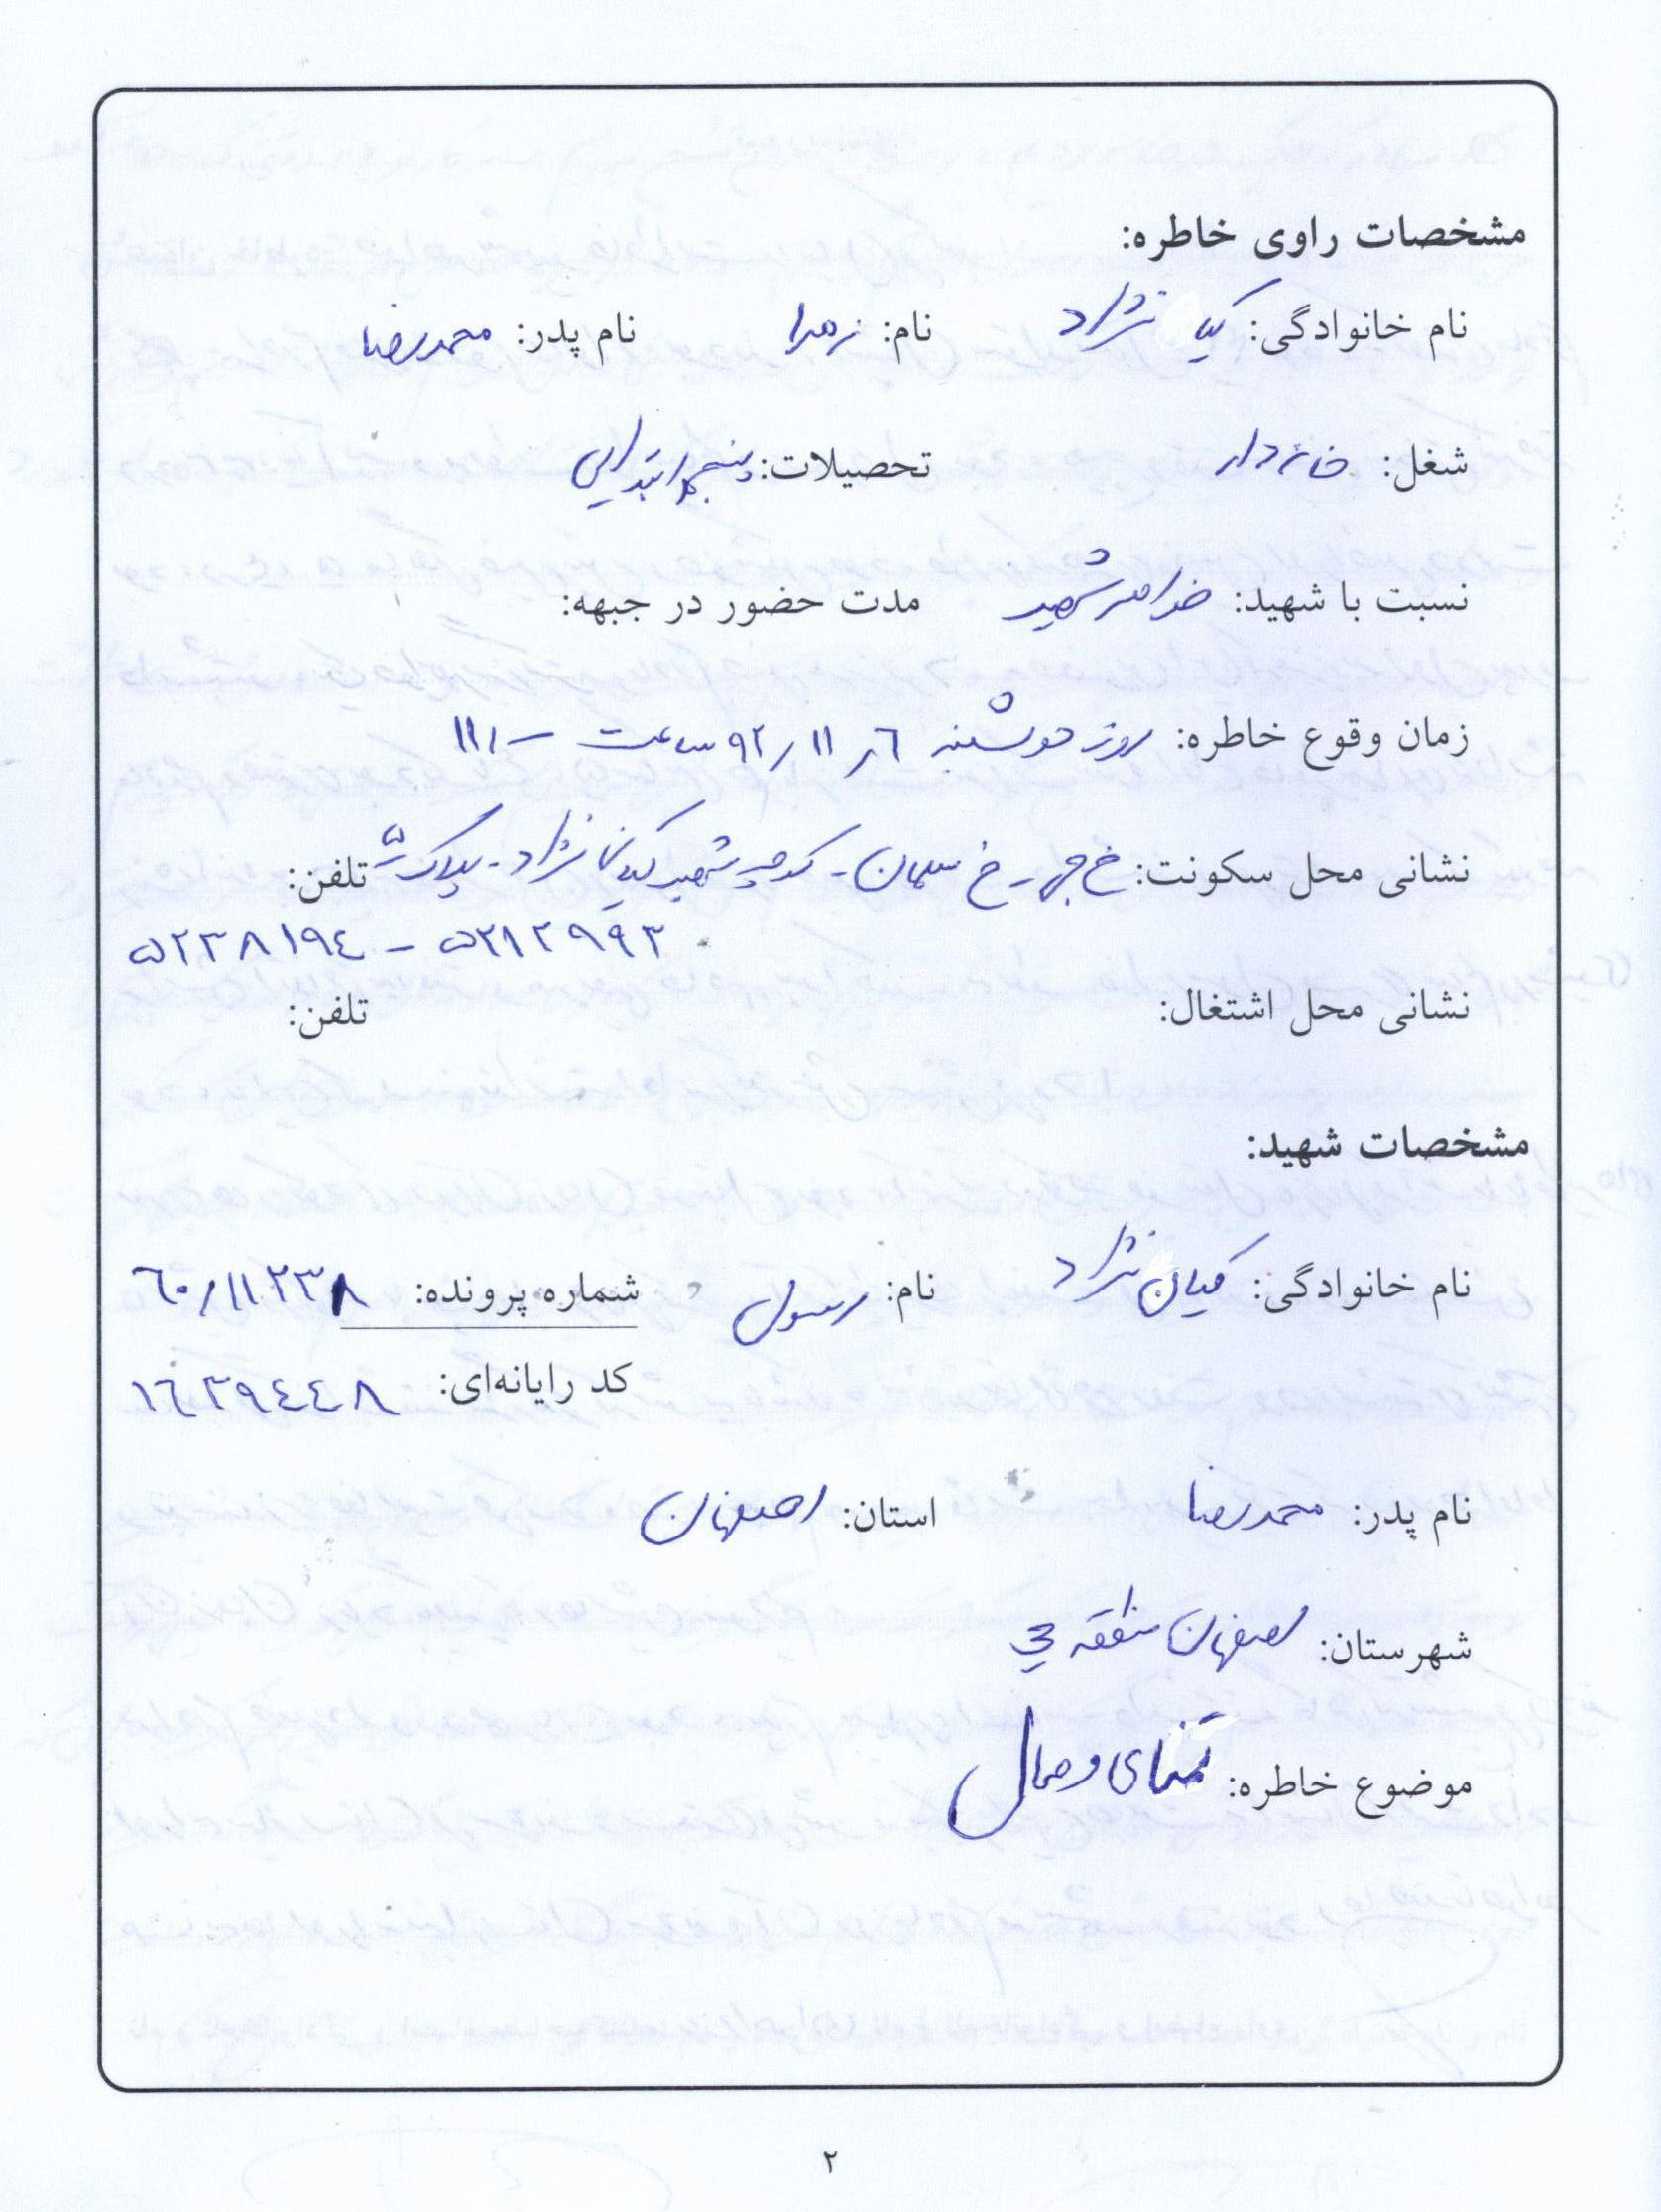 مشخصات راوی خاطره:
نام خانوادگی: کیا نژاد نام: زهرا نام پدر: محمدرضا
شغل: خانه دار تحصیلات: پنجم ابتدایی
نسبت با شهید: خواهر شهید مدت حضور در جبهه:
زمان وقوع خاطره: روز دوشنبه ۶ر ۱۱ / ۹۲ ساعت
نشانی محل سکونت: خ جی - خ سلمان - کوچه شهید کیان نژاد - پلاک تلفن:
۵۲۱۲۹۹۳ - ۵۲۳۸۱۹۴
نشانی محل اشتغال: تلفن:
مشخصات شهید:
نام خانوادگی: کیان نژاد نام: رسول شماره پرونده: ۶۰/۱۱۲۳۸
کد رایانه‌ای: ۱۶۳۹۴۴۸
نام پدر: محمدرضا استان: اصفهان
شهرستان: اصفهان منطقه ۳
موضوع خاطره: تمنای وصال
۲